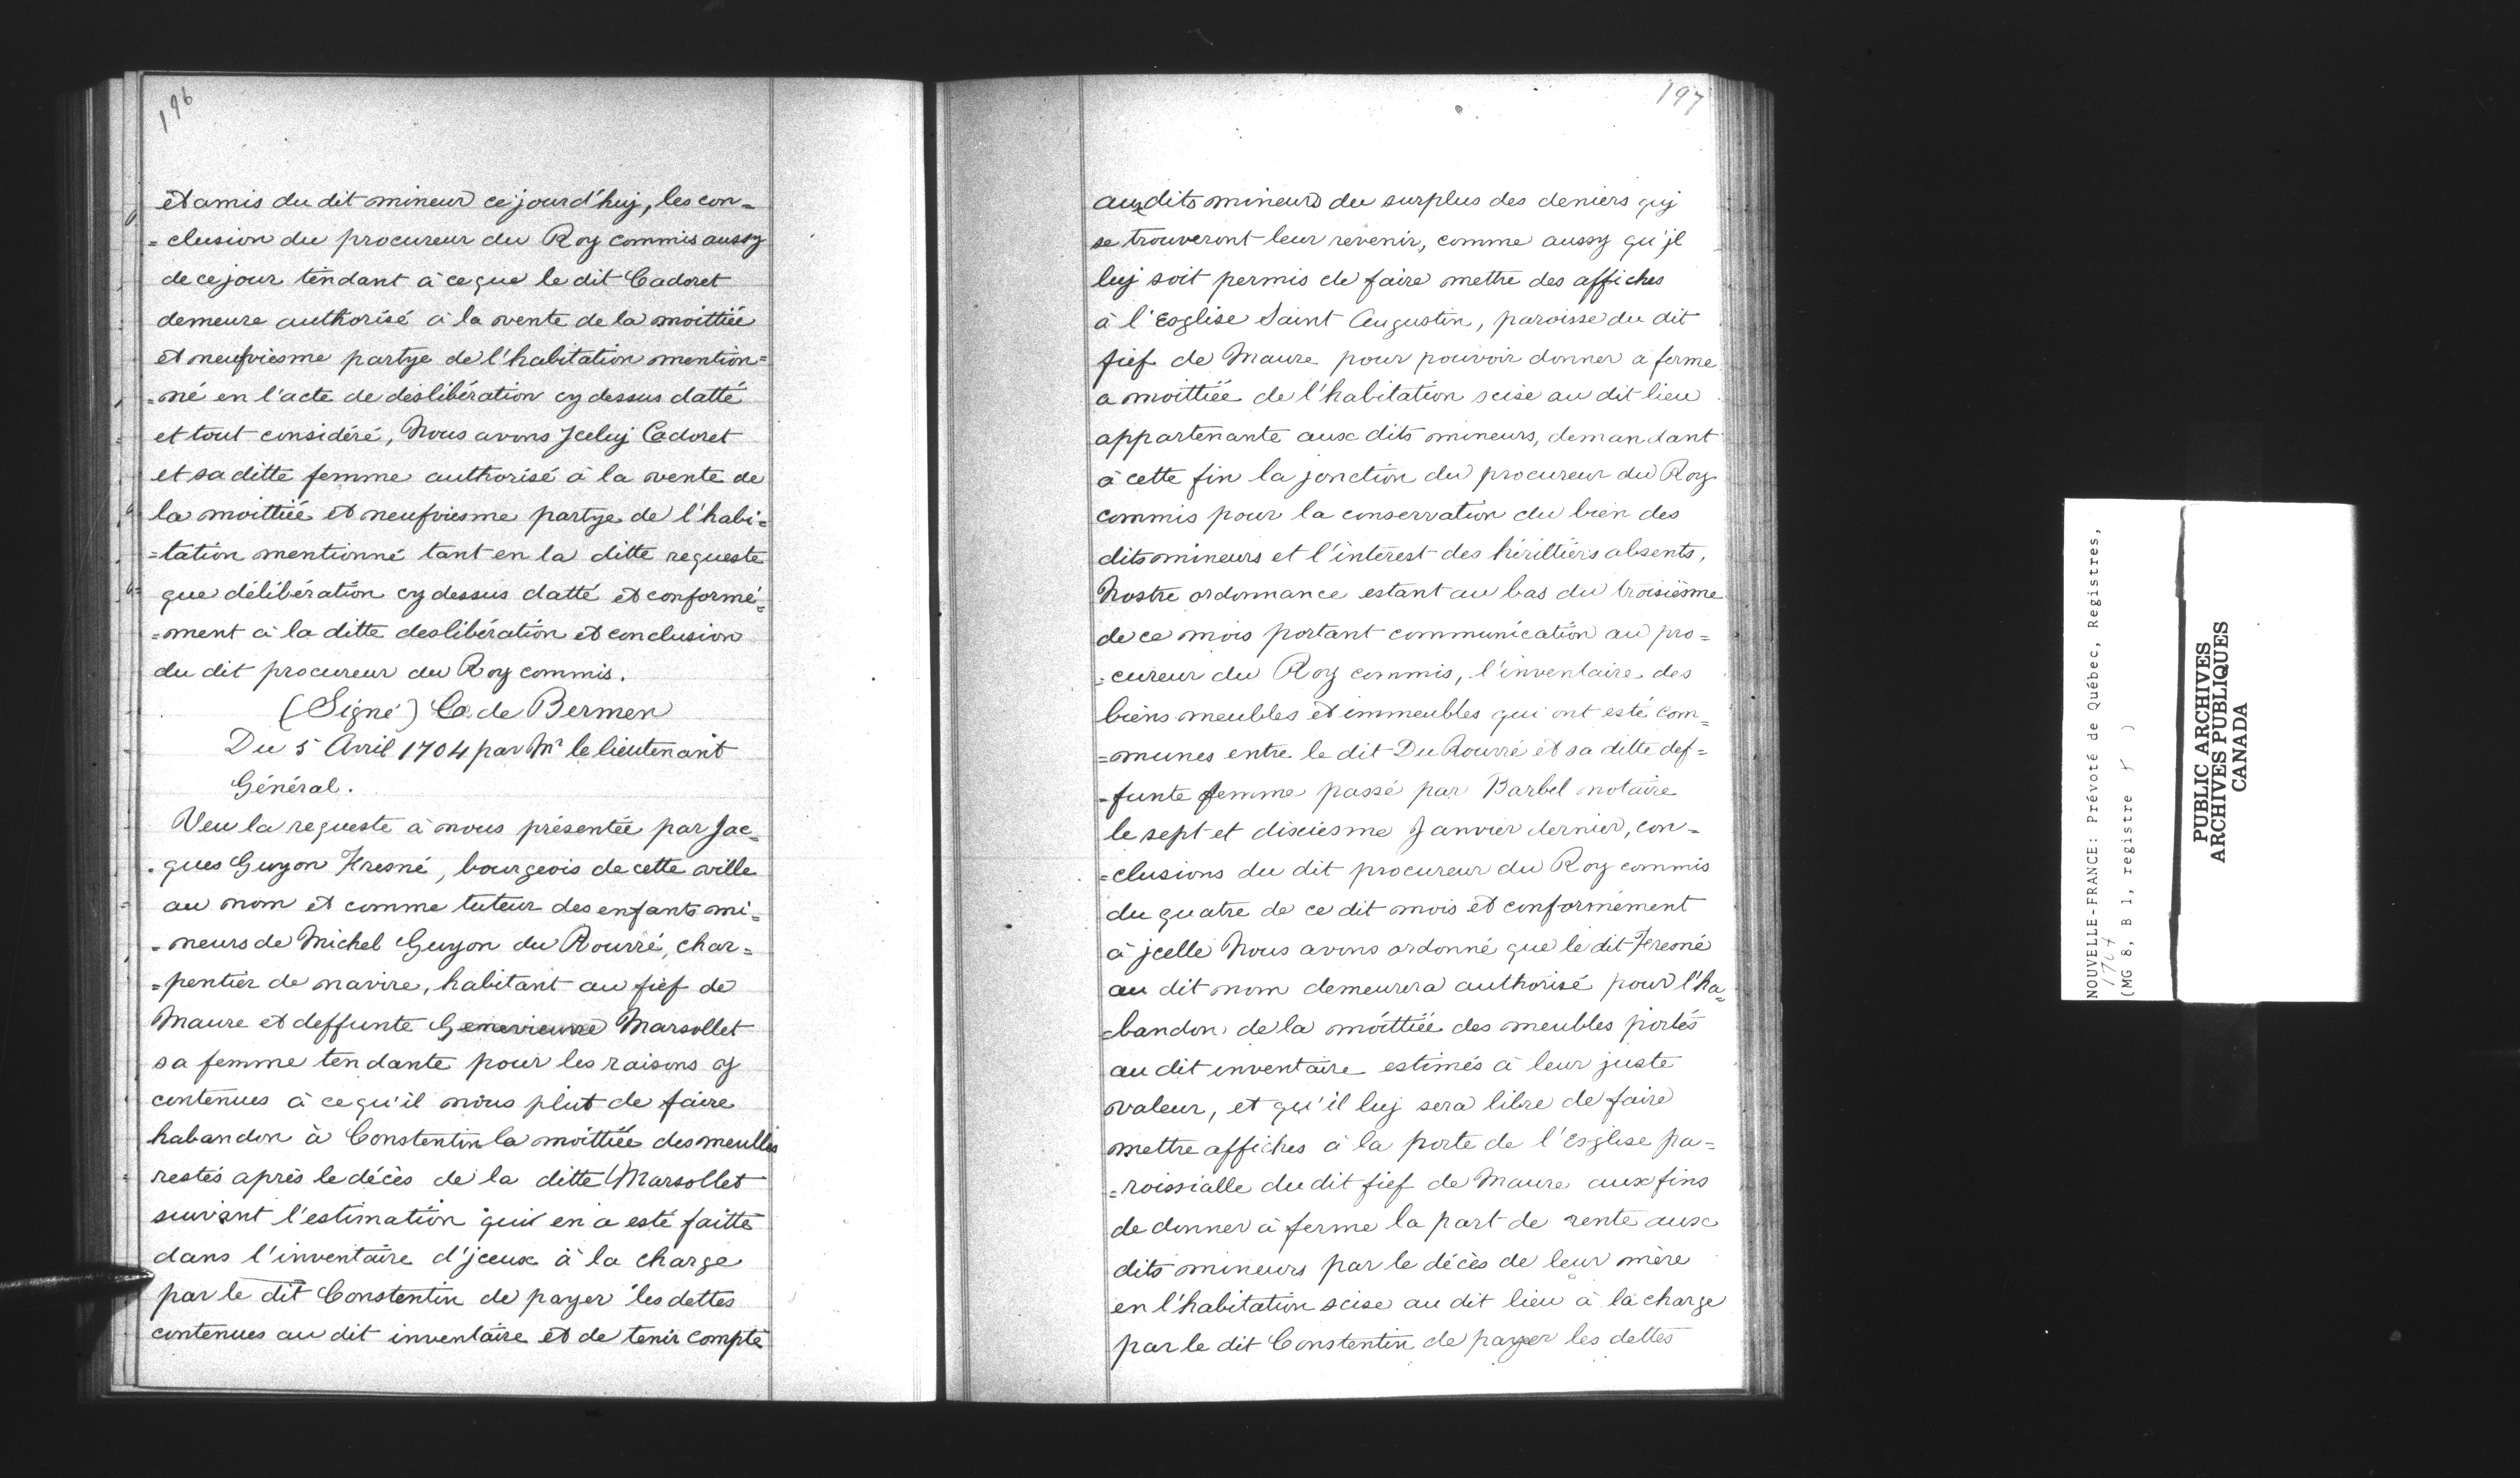 196
et amis du dit mineur ce jourd'huy, les con=
=clusion du procureur du Roy commis aussy
de ce jour tendant à ce que le dit Cadoret
demeure authorisé à la vente de la moittiée
et neufviesme partye de l'habitation mention=
=né en l'acte de deslibération cy dessus datté
et tout considéré, Nous avons Jceluy Cadoret
et sa ditte femme authorisé à la vente de
la moittiée et neufviesme partye de l'habi=
=tation mentionné tant en la ditte requeste
que délibération cy dessus datté et conformé=
=ment à la ditte deslibération et conclusion
du dit procureur du Roy commis.
(Signé) Co. de Bermen
Du 5 Avril 1704 par Mr le lieutenant
Général.
Veu la requeste à nous présentée par Jac=
=ques Guyon Fresné, bourgeois de cette ville
au nom et comme tuteur des enfants mi=
=neurs de Michel Guyon du Rouvré, char=
=pentier de navire, habitant au fief de
Maure et deffunte Genevieuve Marsollet
sa femme tendante pour les raisons y
contenues à ce qu'il nous plut de faire
habandon à Constentin la moittiée des meubles
restés après le décès de la ditte Marsollet
suivant l'estimation qui en a esté faitte
dans l'inventaire d'jceux à la charge
par le dit Constentin de payer les dettes
contenues au dit inventaire et de tenir compte
197
aux dits mineurs du surplus des deniers quj
se trouveront leur revenir, comme aussy qu'jl
luj soit permis de faire mettre des affiches
à l'Esglise Saint Augustin, paroisse du dit
fief de Maure pour pouvoir donner a ferme
a moittiée de l'habitation scise au dit lieu
appartenante aux dits mineurs, demandant
à cette fin la jonction du procureur du Roy
commis pour la conservation du bien des
dits mineurs et l'intérest des hérittiérs absents,
Nostre ordonnance estant au bas du troisiésme
de ce mois portant communication au pro=
=cureur du Roy commis, l'inventaire des
biens meubles et immeubles qui ont esté com=
=munes entre le dit Du Rouvré et sa ditte def=
=funte femme passé par Barbel notaire
le sept et dixiesme Janvier dernier, con=
=clusions du dit procureur du Roy commis
du quatre de ce dit mois et conformément
à jcelle Nous avons ordonné que le dit Fresné
au dit nom demeurera authorisé pour l'ha=
=bandon de la moittiée des meubles portés
au dit inventaire estimés à leur juste
valeur, et qu'il luj sera libre de faire
mettre affiches à la porte de l'Esglise pa=
=roissialle du dit fief de Maure aux fins
de donner à ferme la part de rente aux
dits mineurs par le décès de leur mère
en l'habitation scise au dit lieu à la charge
par le dit Constentin de payer les dettes
NOUVELLE-FRANCE: Prévoté de Québec, Registres,
1704
(MG 8, B 1, registre )
PUBLIC ARCHIVES
ARCHIVES PUBLIQUES
CANADA